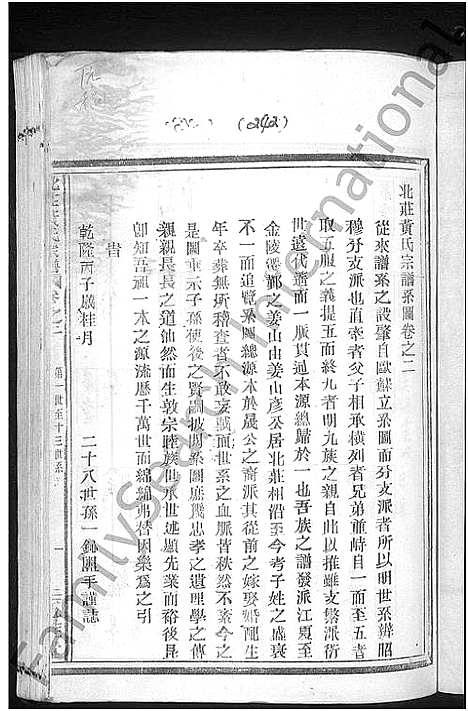 (242)
北莊黃氏宗譜系圖卷之二
從來譜系之設肇自歐蘇立系圖而分支派者所以明世系辨昭
穆分支派也直牽者父子相承橫列者兄弟並峙自一而至五者
取五服之義提五而終九者明九族之親自此以推雖支繁派衍
世遠代遙而一脈貫通本源總歸於一也吾族之譜發派江夏至
金陵遷鄞之姜山由姜山彥公居北莊相沿至今考子姓之盛衰
不一而追覽系圖總源本於晟公之裔派其從前之嫁娶婚配生
年卒葬無所稽查者不敢妄議而世系之血脈皆秩然不紊今之
是圖垂示子孫使後之賢嗣披閱系圖庶幾忠孝之遺理學之傳
親親長長之道油然而生敦宗睦族世承世述顯先業而裕後昆
卽知吾祖一本之源流歷千萬世而綿綿弗替因樂為之引
旹
乾隆丙子歲桂月
二十八世孫一錦關手謹誌
第一世至十三世系
一
FamilySearch International